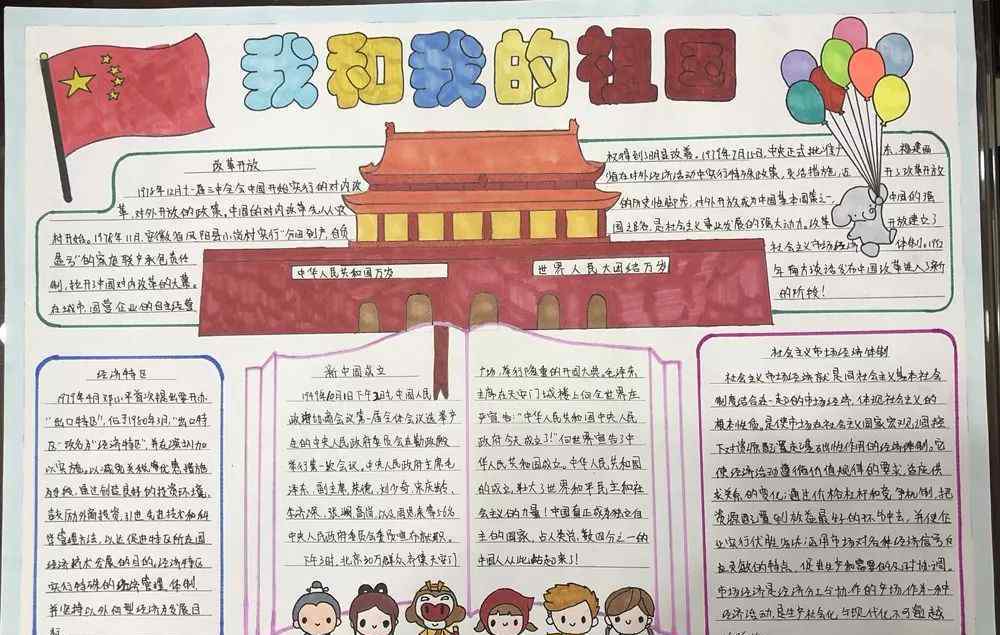 我和我的祖国
改革开放
1978年12月十一届三中全会中国开始实行的对内改
革、对外开放的政策。中国的对内改革先从农
村开始。1978年11月,安徽省凤阳县小岗村实行“分田到户,自负
盈亏”的家庭联产承包责任
制,拉开了中国对内改革的大幕。
在城市,国营企业的自主经营
权得到了明显改善。1979年7月15日,中央正式批准广 东、福建两
省在对外经济活动中实行特殊政策、灵活措施,迈 开了改革开放
的历史性脚步,对外开放成为中国基本国策之一, 中国的强
国之路,是社会主义事业发展的强大动力。改革 开放建立了
社会主义市场经济 体制。1992
年南方谈话发布中国改革进入了新
的阶段!
中华人民共和国万岁
世界人民大团结万岁
经济特区
1979年4月邓小平首次提出要开办
“出口特区”,
区”改名为“经济特区”,并在深圳加
以实施。以减免关税等优惠措施
为手段,通过创造良好的投资环境,
鼓励外商投资,引进先进技术和科
学管理方法,以达促进特区所在国
经济技术发展的目的。经济特区
实行特殊的经济管理 体制,
并坚持以外向型经济为发展目
新中国成立
1949年10月1日下午2时,中国人民
政治协商会议第一届全体会议选举产
生的中央人民政府委员会在勤政殿
举行第一次会议,中央人民政府主席毛
泽东,副主席朱德、刘少奇、宋庆龄、
李济深、张澜、高岗,以及周恩来等56名
中央人民政府委员会委员宣布就职。
下午3时,北京30万群众齐集天安门
广场,举行隆重的开国大典。毛泽东
主席在天安门城楼上向全世界庄
严宣告:“中华人民共和国中央人民
政府今天成立了!”向世界宣告了中
华人民共和国成立。中华人民共和国
的成立,壮大了世界和平民主和社
会主义的力量!中国真正成为独立自
主的国家,占人类总数四分之一的
中国人从此站起来了!
社会主义市场经济体制
社会主义市场经济就是同社会主义基本社会
制度结合在一起的市场经济,体现社会主义的
根本性质,是使市场在社会主义国家宏观调控
下对资源配置起决定性作用的经济体制。它
使经济活动遵循价值规律的要求,适应供
求关系的变化;通过价格杠杆和竞争机制,把
资源配置到效益最好的环节中去,并使企
业实行优胜劣汰;运用市场对各种经济信号反
应灵敏的特点,促进生产和需求的及时协调。
市场经济是经济分工与协作的产物,作为一种
经济活动,是生产社会化与现代化不可逾越